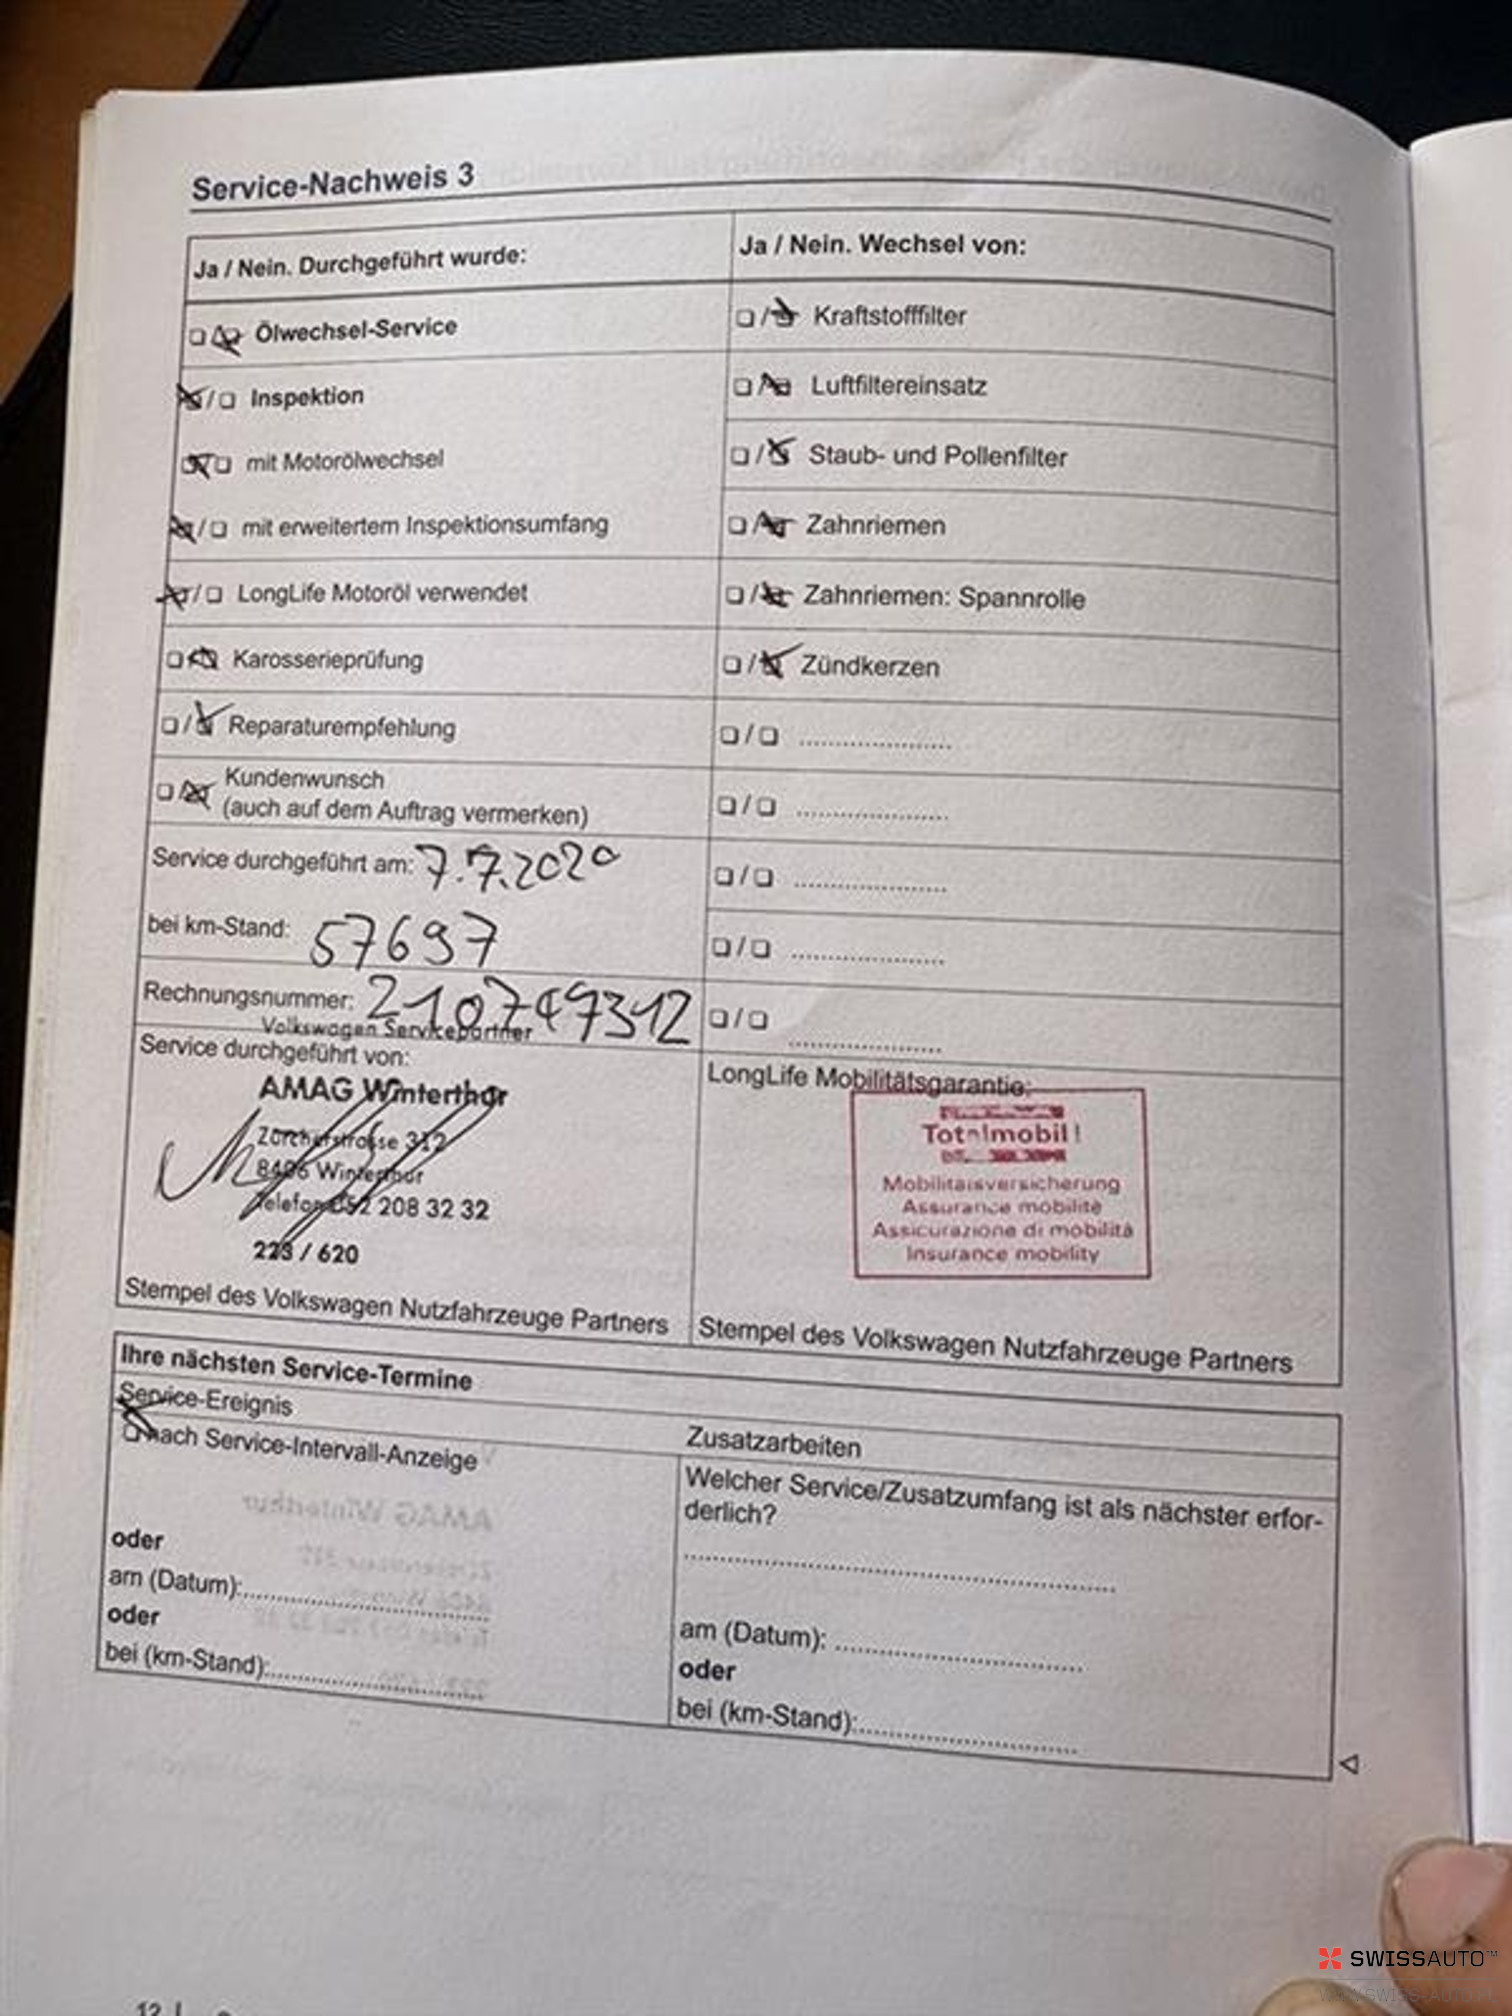 Service-Nachweis 3
Ja / Nein. Durchgeführt wurde:
Ölwechsel-Service
Inspektion
mit Motorölwechsel
mit erweitertem Inspektionsumfang
LongLife Motoröl verwendet
Karosserieprüfung
Reparaturempfehlung
Kundenwunsch
(auch auf dem Auftrag vermerken)
Service durchgeführt am: 7.7.2020
bei km-Stand: 57697
Rechnungsnummer:
Volkswagen Servicepartner
Service durchgeführt von:
AMAG Winterthur
Zürcherstrasse 312
8406 Winterthur
Telefon 052 208 32 32
223 / 620
Stempel des Volkswagen Nutzfahrzeuge Partners
Ja / Nein. Wechsel von:
Kraftstofffilter
Luftfiltereinsatz
Staub- und Pollenfilter
Zahnriemen
Zahnriemen: Spannrolle
Zündkerzen
LongLife Mobilitätsgarantie:
Totalmobil!
Mobilitätsversicherung
Assurance mobilité
Assicurazione di mobilità
Insurance mobility
Stempel des Volkswagen Nutzfahrzeuge Partners
Ihre nächsten Service-Termine
Service-Ereignis
nach Service-Intervall-Anzeige
oder
am (Datum):
oder
bei (km-Stand):
Zusatzarbeiten
Welcher Service/Zusatzumfang ist als nächster erfor-
derlich?
am (Datum):
oder
bei (km-Stand):
12
SWISSAUTO™